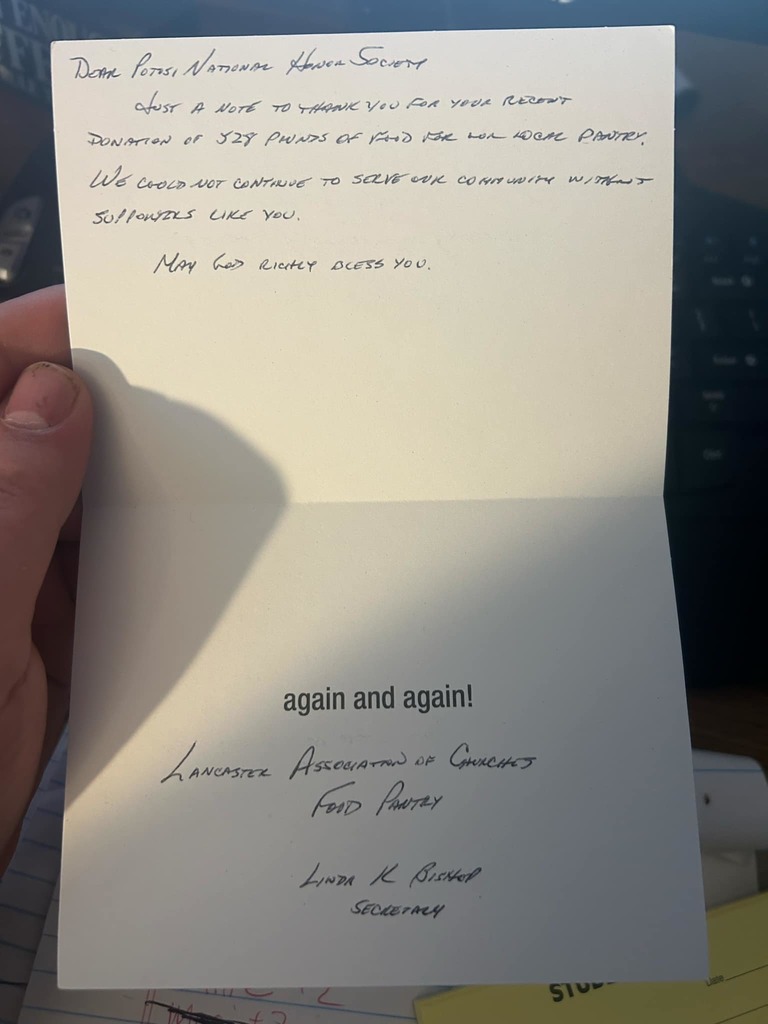 DEAR POTOSI NATIONAL HONOR SOCIETY
JUST A NOTE TO THANK YOU FOR YOUR RECENT
DONATION OF 528 POUNDS OF FOOD FOR OUR LOCAL PANTRY.
WE COULD NOT CONTINUE TO SERVE OUR COMMUNITY WITHOUT
SUPPORTERS LIKE YOU.
MAY GOD RICHLY BLESS YOU.
again and again!
LANCASTER ASSOCIATION OF CHURCHES
FOOD PANTRY
LINDA K BISHOP
SECRETARY